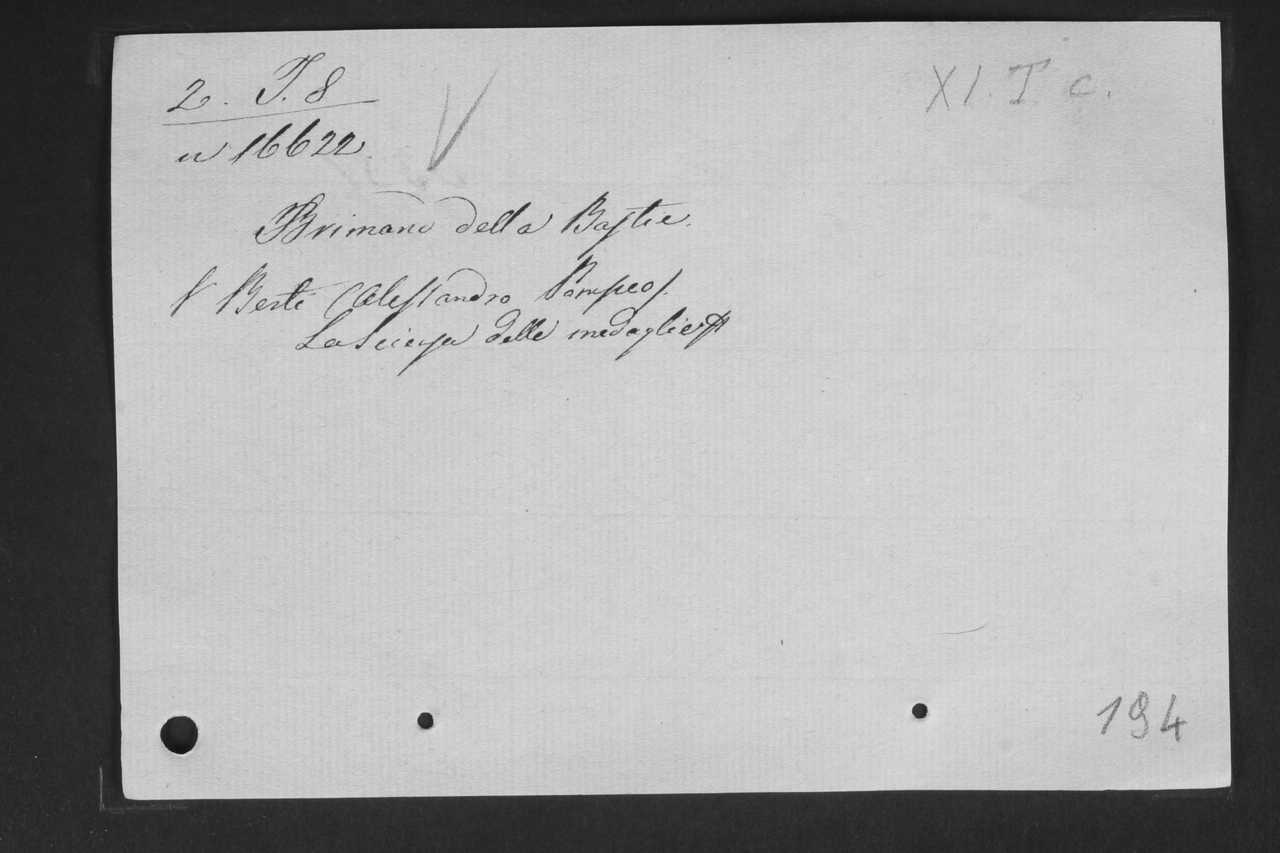 2. T. 8
XI. T. c.
n 16622
Brimano della Bastie.
V Berti Alessandro Pompeo/.
La Scienza delle medaglie
194